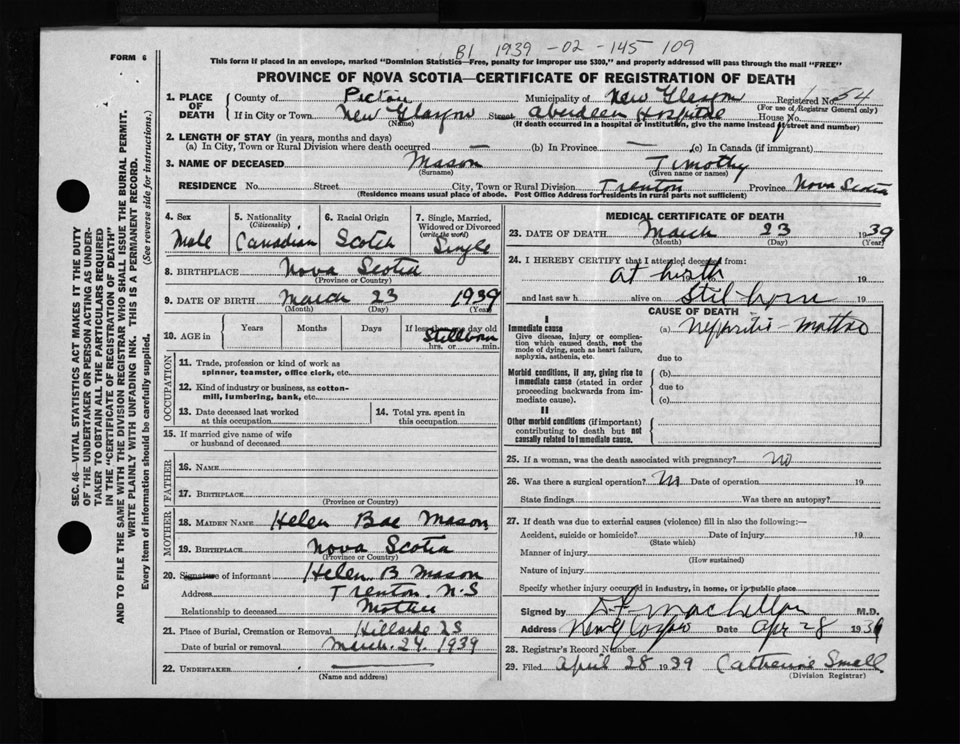 B1 1939 -02 -145 109
This form if placed in an envelope, marked "Dominion Statistics—Free, penalty for improper use $300," and properly addressed will pass through the mail "FREE"
FORM 6
PROVINCE OF NOVA SCOTIA—CERTIFICATE OF REGISTRATION OF DEATH
SEC. 46—VITAL STATISTICS ACT MAKES IT THE DUTY
OF THE UNDERTAKER OR PERSON ACTING AS UNDER-
TAKER TO OBTAIN ALL THE PARTICULARS REQUIRED
IN THE "CERTIFICATE OF REGISTRATION OF DEATH"
AND TO FILE THE SAME WITH THE DIVISION REGISTRAR WHO SHALL ISSUE THE BURIAL PERMIT.
WRITE PLAINLY WITH UNFADING INK. THIS IS A PERMANENT RECORD.
Every item of information should be carefully supplied. (See reverse side for instructions.)
1. PLACE OF DEATH County of Pictou Municipality of New Glasgow Registered No. 54
(For use of Registrar General only)
If in City or Town New Glasgow Street Aberdeen Hospital House No.
(Name) (If death occurred in a hospital or institution, give the name instead of street and number)
2. LENGTH OF STAY (in years, months and days)
(a) In City, Town or Rural Division where death occurred — (b) In Province — (c) In Canada (if immigrant)
3. NAME OF DECEASED Mason Timothy
(Surname) (Given name or names)
RESIDENCE No. Street City, Town or Rural Division Trenton Province Nova Scotia
(Residence means usual place of abode. Post Office Address for residents in rural parts not sufficient)
4. Sex Male
5. Nationality (Citizenship) Canadian
6. Racial Origin Scotch
7. Single, Married, Widowed or Divorced (write the word) Single
8. BIRTHPLACE Nova Scotia
(Province or Country)
9. DATE OF BIRTH March 23 1939
(Month) (Day) (Year)
10. AGE in Years Months Days If less than one day old
Stillborn
hrs. or min.
OCCUPATION
11. Trade, profession or kind of work as
spinner, teamster, office clerk, etc.
12. Kind of industry or business, as cotton-
mill, lumbering, bank, etc.
13. Date deceased last worked
at this occupation
14. Total yrs. spent in
this occupation
15. If married give name of wife
or husband of deceased
FATHER
16. NAME
17. BIRTHPLACE
(Province or Country)
MOTHER
18. MAIDEN NAME Helen Bae Mason
19. BIRTHPLACE Nova Scotia
(Province or Country)
20. Signature of informant Helen B Mason
Address Trenton N.S
Relationship to deceased Mother
21. Place of Burial, Cremation or Removal Hillside
Date of burial or removal March. 24. 1939
22. UNDERTAKER
(Name and address)
MEDICAL CERTIFICATE OF DEATH
23. DATE OF DEATH March 23 1939
(Month) (Day) (Year)
24. I HEREBY CERTIFY that I attended deceased from:
at birth 19
and last saw h alive on Still born 19
CAUSE OF DEATH
I
Immediate cause
Give disease, injury or complica-
tion which caused death, not the
mode of dying, such as heart failure,
asphyxia, asthenia, etc.
(a)
due to
Morbid conditions, if any, giving rise to
immediate cause (stated in order
proceeding backwards from im-
mediate cause).
(b)
due to
(c)
II
Other morbid conditions (if important)
contributing to death but not
causally related to immediate cause.
25. If a woman, was the death associated with pregnancy? no
26. Was there a surgical operation? no Date of operation 19
State findings Was there an autopsy?
27. If death was due to external causes (violence) fill in also the following:—
Accident, suicide or homicide? Date of injury 19
(State which)
Manner of injury
(How sustained)
Nature of injury
Specify whether injury occurred in industry, in home, or in public place
Signed by M.D.
Address New Glasgow Date Apr 28 1939
28. Registrar's Record Number
29. Filed April 28 1939 Catherine Small
(Division Registrar)